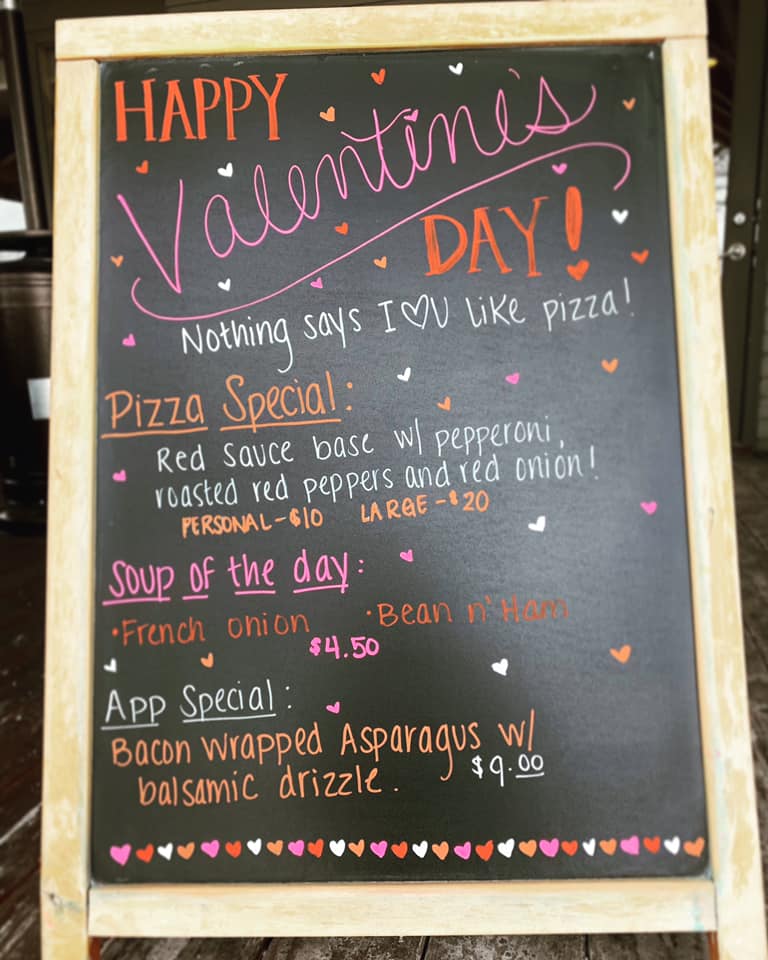 HAPPY
Valentine's
DAY!
Nothing says I ♡ U like pizza!
Pizza Special:
Red sauce base w/ pepperoni,
roasted red peppers and red onion!
PERSONAL-$10 LARGE-$20
Soup of the day:
• French onion • Bean n' Ham
$4.50
App Special:
Bacon wrapped Asparagus w/
balsamic drizzle. $9.00